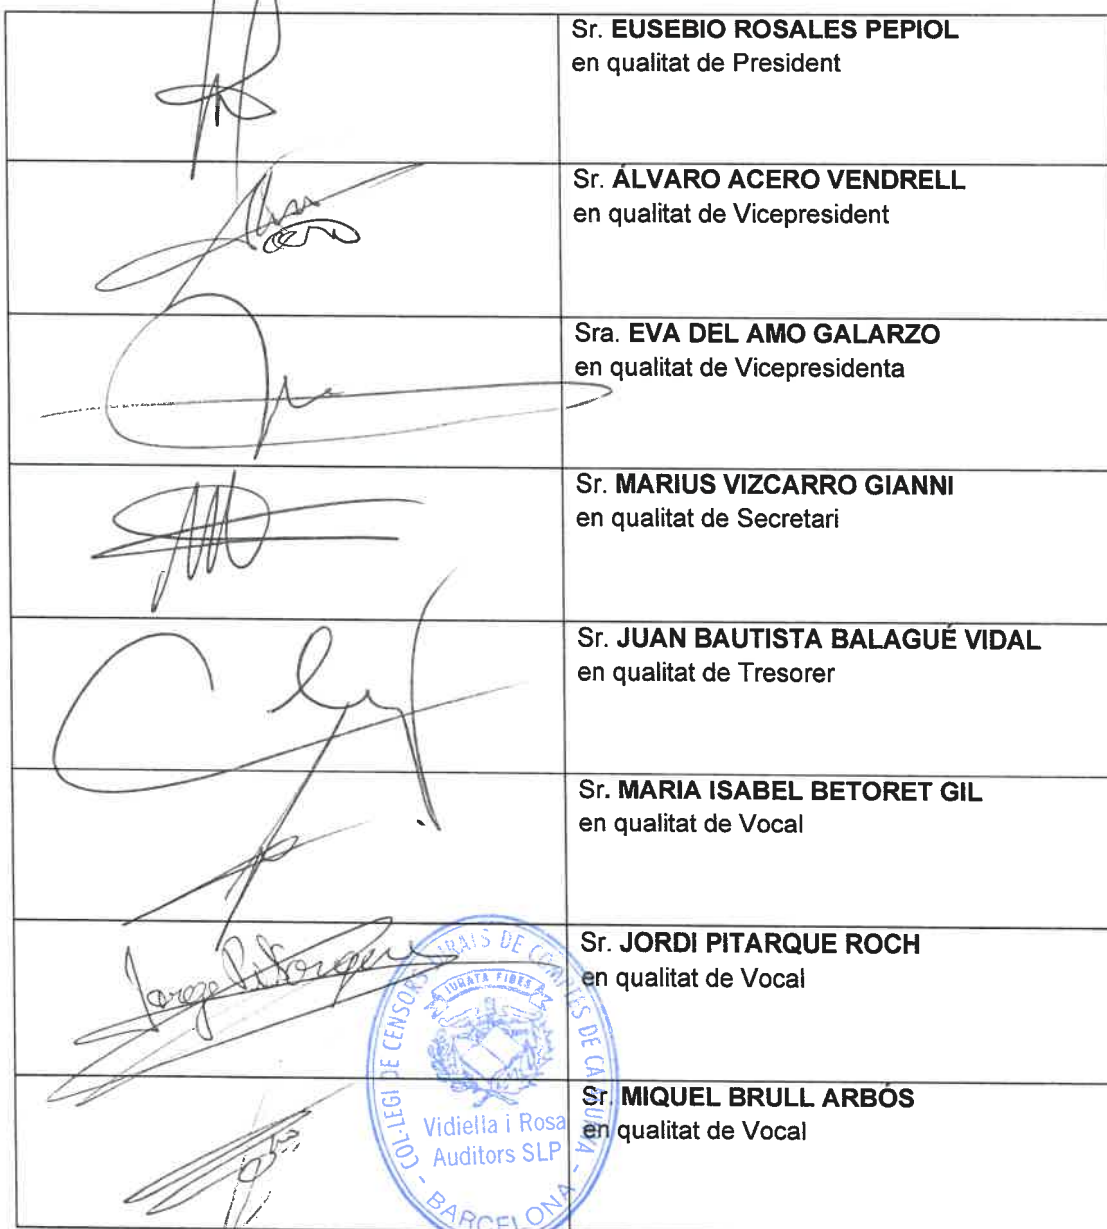 Sr. EUSEBIO ROSALES PEPIOL
en qualitat de President
Sr. ÁLVARO ACERO VENDRELL
en qualitat de Vicepresident
Sra. EVA DEL AMO GALARZO
en qualitat de Vicepresidenta
Sr. MARIUS VIZCARRO GIANNI
en qualitat de Secretari
Sr. JUAN BAUTISTA BALAGUÉ VIDAL
en qualitat de Tresorer
Sr. MARIA ISABEL BETORET GIL
en qualitat de Vocal
Jorge Pitarque
Sr. JORDI PITARQUE ROCH
en qualitat de Vocal
COL·LEGI DE CENSORS JURATS DE COMPTES DE CATALUNYA - BARCELONA -
JURATA FIDES
Vidiella i Rosa
Auditors SLP
Sr. MIQUEL BRULL ARBÓS
en qualitat de Vocal